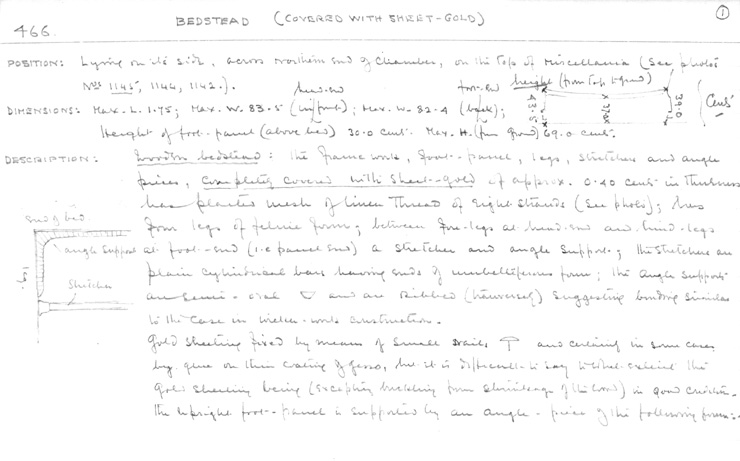 ①
BEDSTEAD (COVERED WITH SHEET-GOLD)
466.
POSITION: Lying on its side, across northern end of Chamber, on the top of Miscellania (See photos
Nos 1145, 1144, 1142.).
head-end foot-end height (from top to ground)
DIMENSIONS: Max. L. 1.75; Max. W. 83.5 (in front); Max. W. 82.4 (back); 43.5 x 37.0 x 39.0 Cents
Height of foot-panel (above bed) 30.0 cents. Max. H. (from ground) 69.0 cents.
DESCRIPTION: Wooden bedstead: the frame work, foot-panel, legs, stretchers and angle
pieces, completely covered with sheet-gold of approx. 0.40 cents in thickness
has plaited mesh of linen thread of eight strands (see photo); has
four legs of feline form; between fore-legs at head-end and hind-legs
at foot-end (i.e. panel end) a stretcher and angle support; the stretchers are
plain cylindrical bars having ends of umbelliferous form; the angle supports
are semi-oval and are ribbed (transversely) suggesting binding similar
to the case in wicker-work construction.
End of bed
angle support
leg.
Stretcher
Gold sheeting fixed by means of small nails and certainly in some cases
by glue on thin coating of gesso, but it is difficult to say to what extent the
gold sheeting being (excepting buckling from shrinkage of the wood) in good condition.
The upright foot-panel is supported by an angle-piece of the following form:-